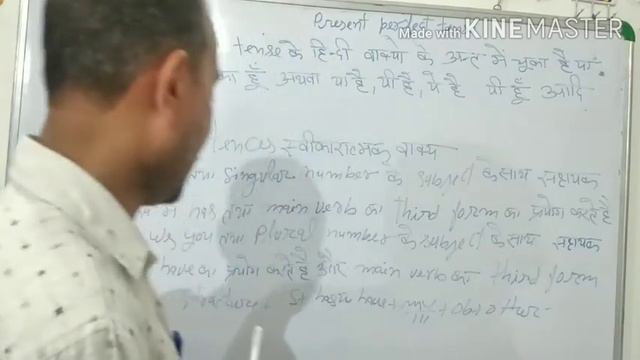 Present perfect ten
Made with KINEMASTER
tense के हिन्दी वाक्यो के अन्त में चुका है या
हूँ अथवा या है, यी है, ये है यी हूँ आदि
tences स्वीकारात्मक वाक्य
singular number के subject के साथ सहायक
has तथा main verb का third form का प्रयोग करते है
we you तथा Plural number के subject के साथ सहायक
have का प्रयोग करते है और main verb का third form
have + + ob + other